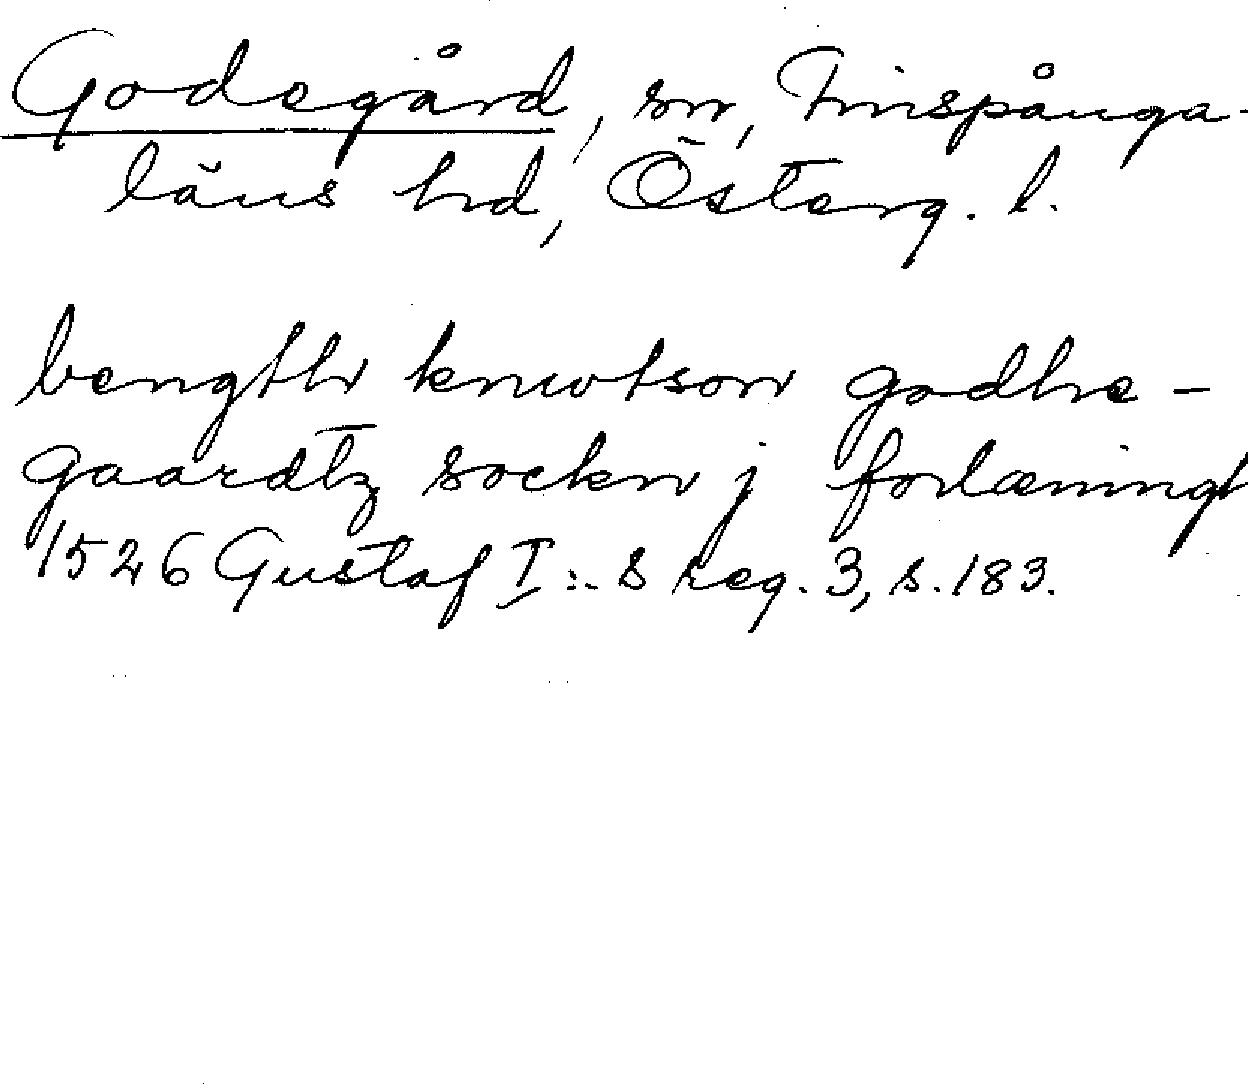 Godegård, sn, Finspånga-
läns hd, Österg. l.
bength knwtson godhe-
gaardtz sockn j forlæningh
1526 Gustaf I:s reg. 3, s. 183.